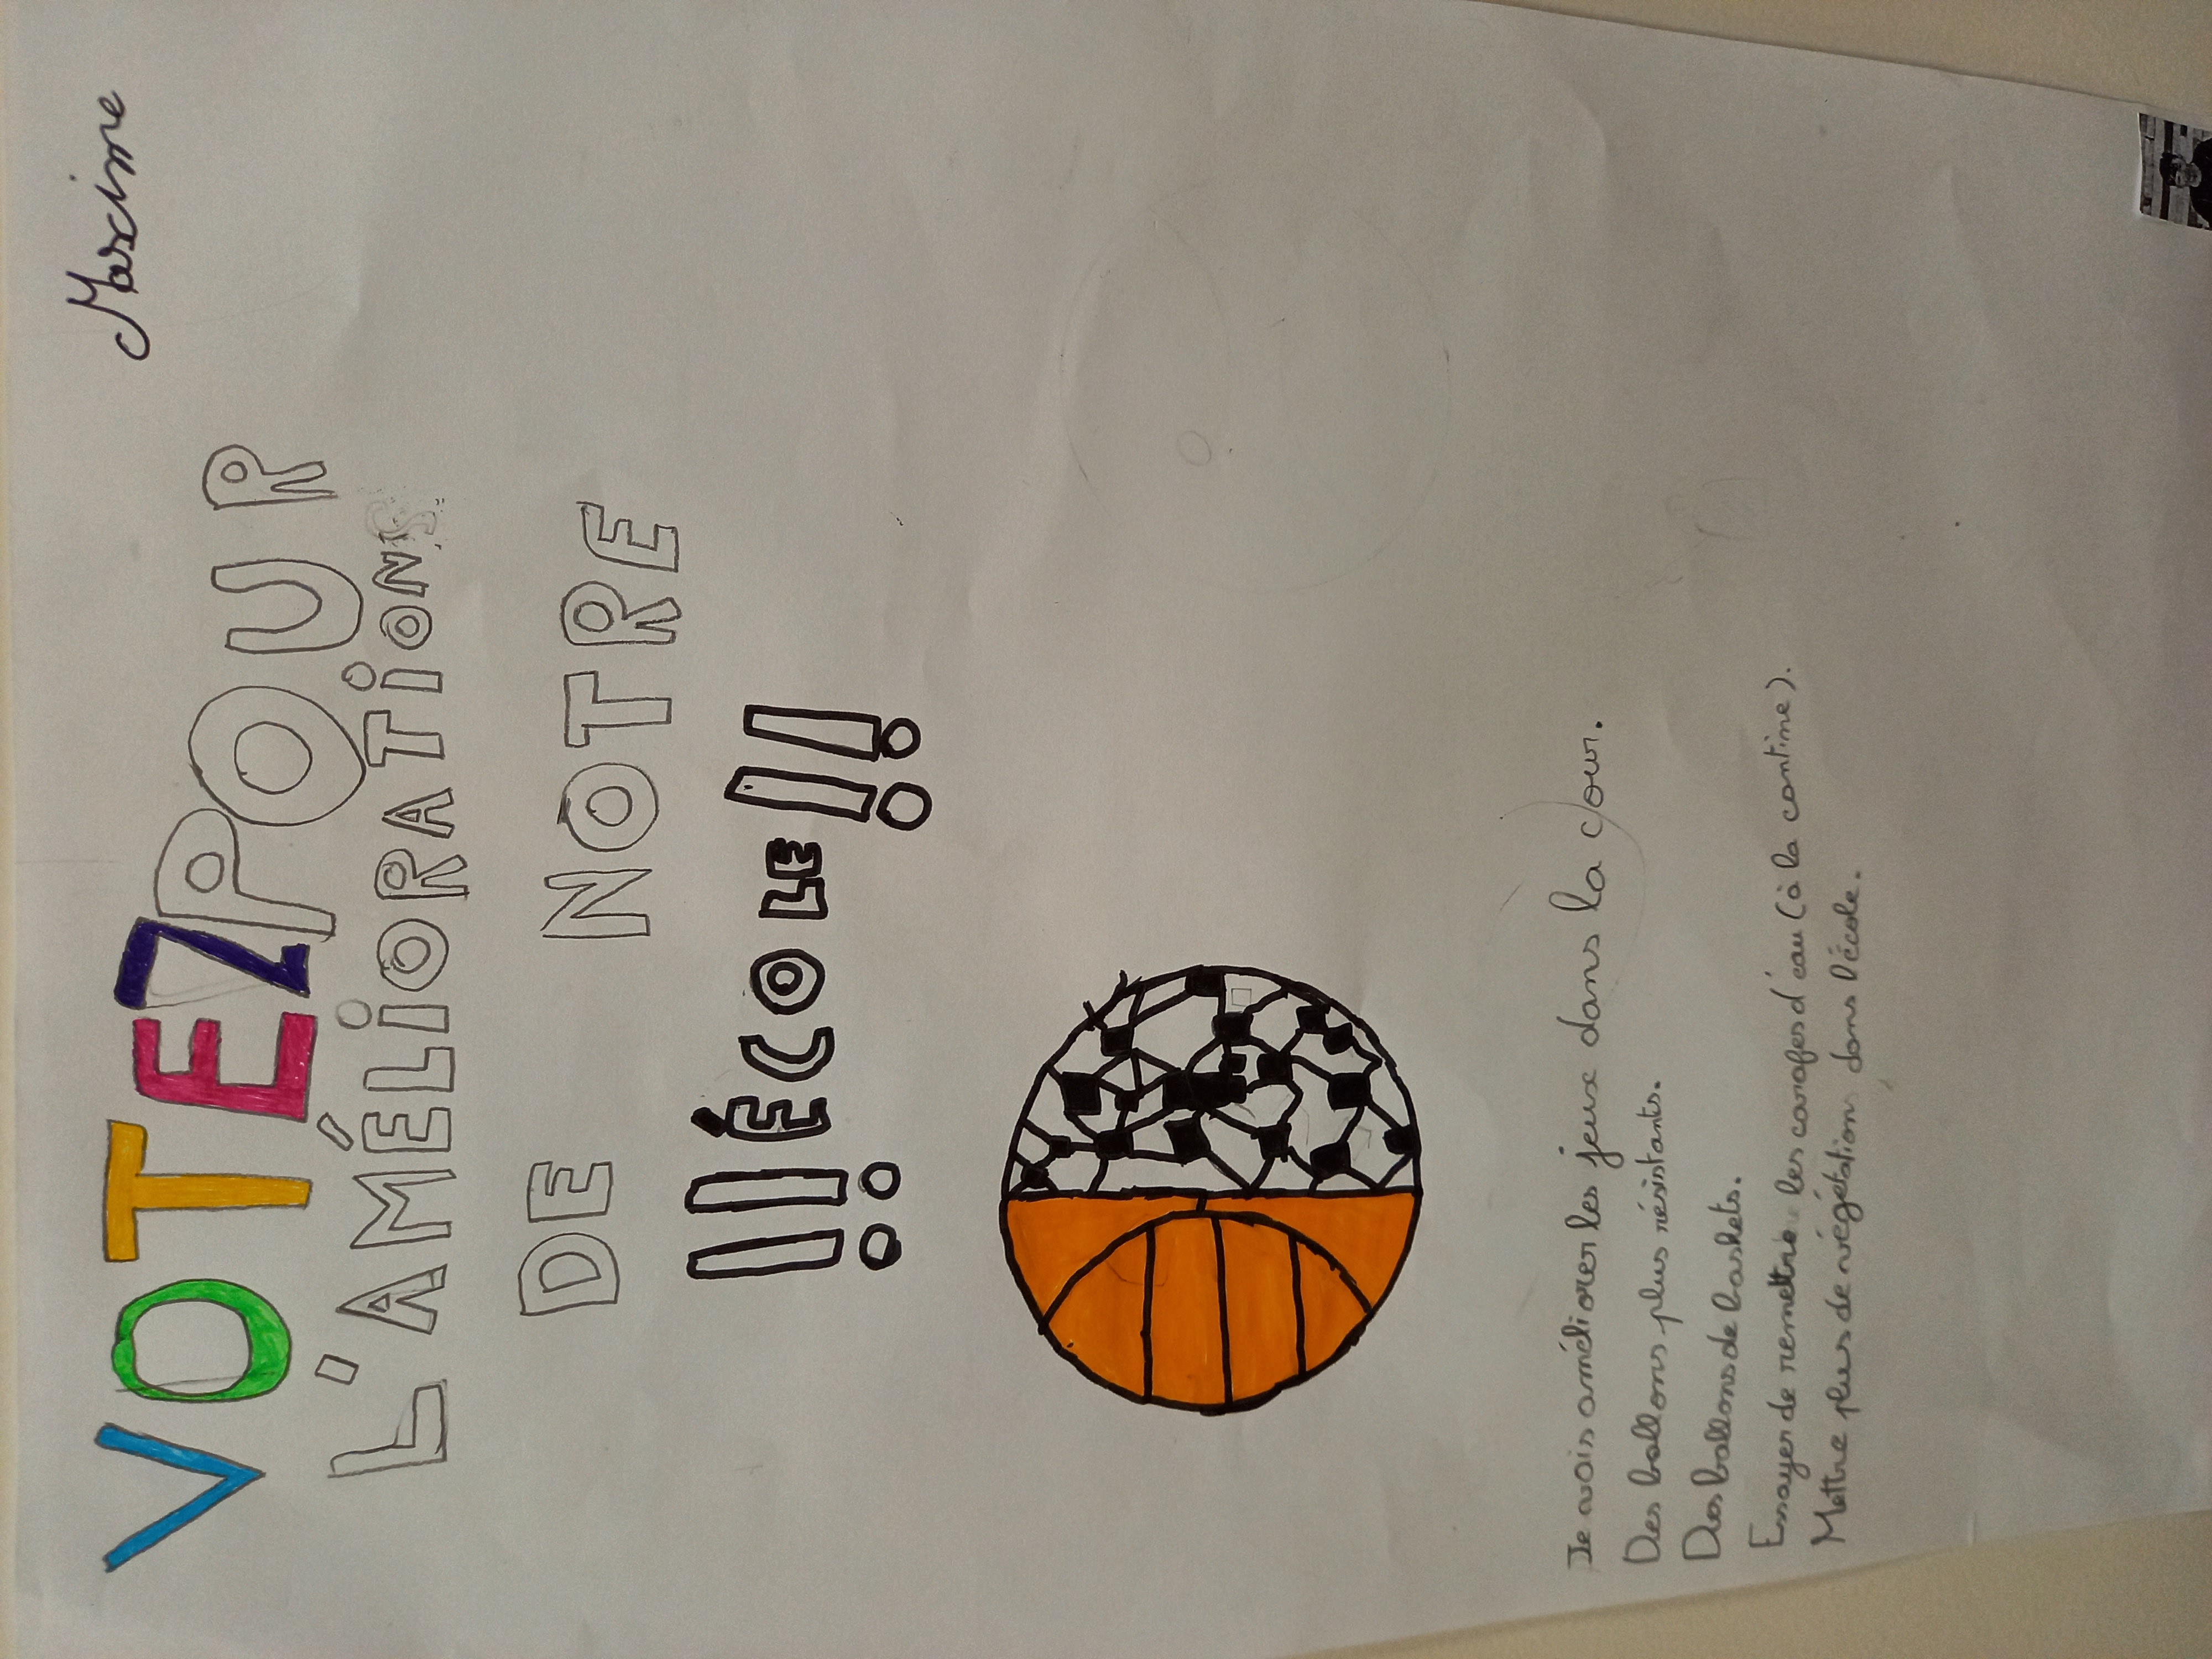 Maxime
VOTEZ POUR
L'AMÉLiORATiON
DE NOTRE
!! ÉCOLE !!
Je vais améliorer les jeux dans la cour.
Des ballons plus résistants.
Des ballons de baskets.
Essayer de remettre les carafes d'eau (à la cantine).
Mettre plus de végétation dans l'école.